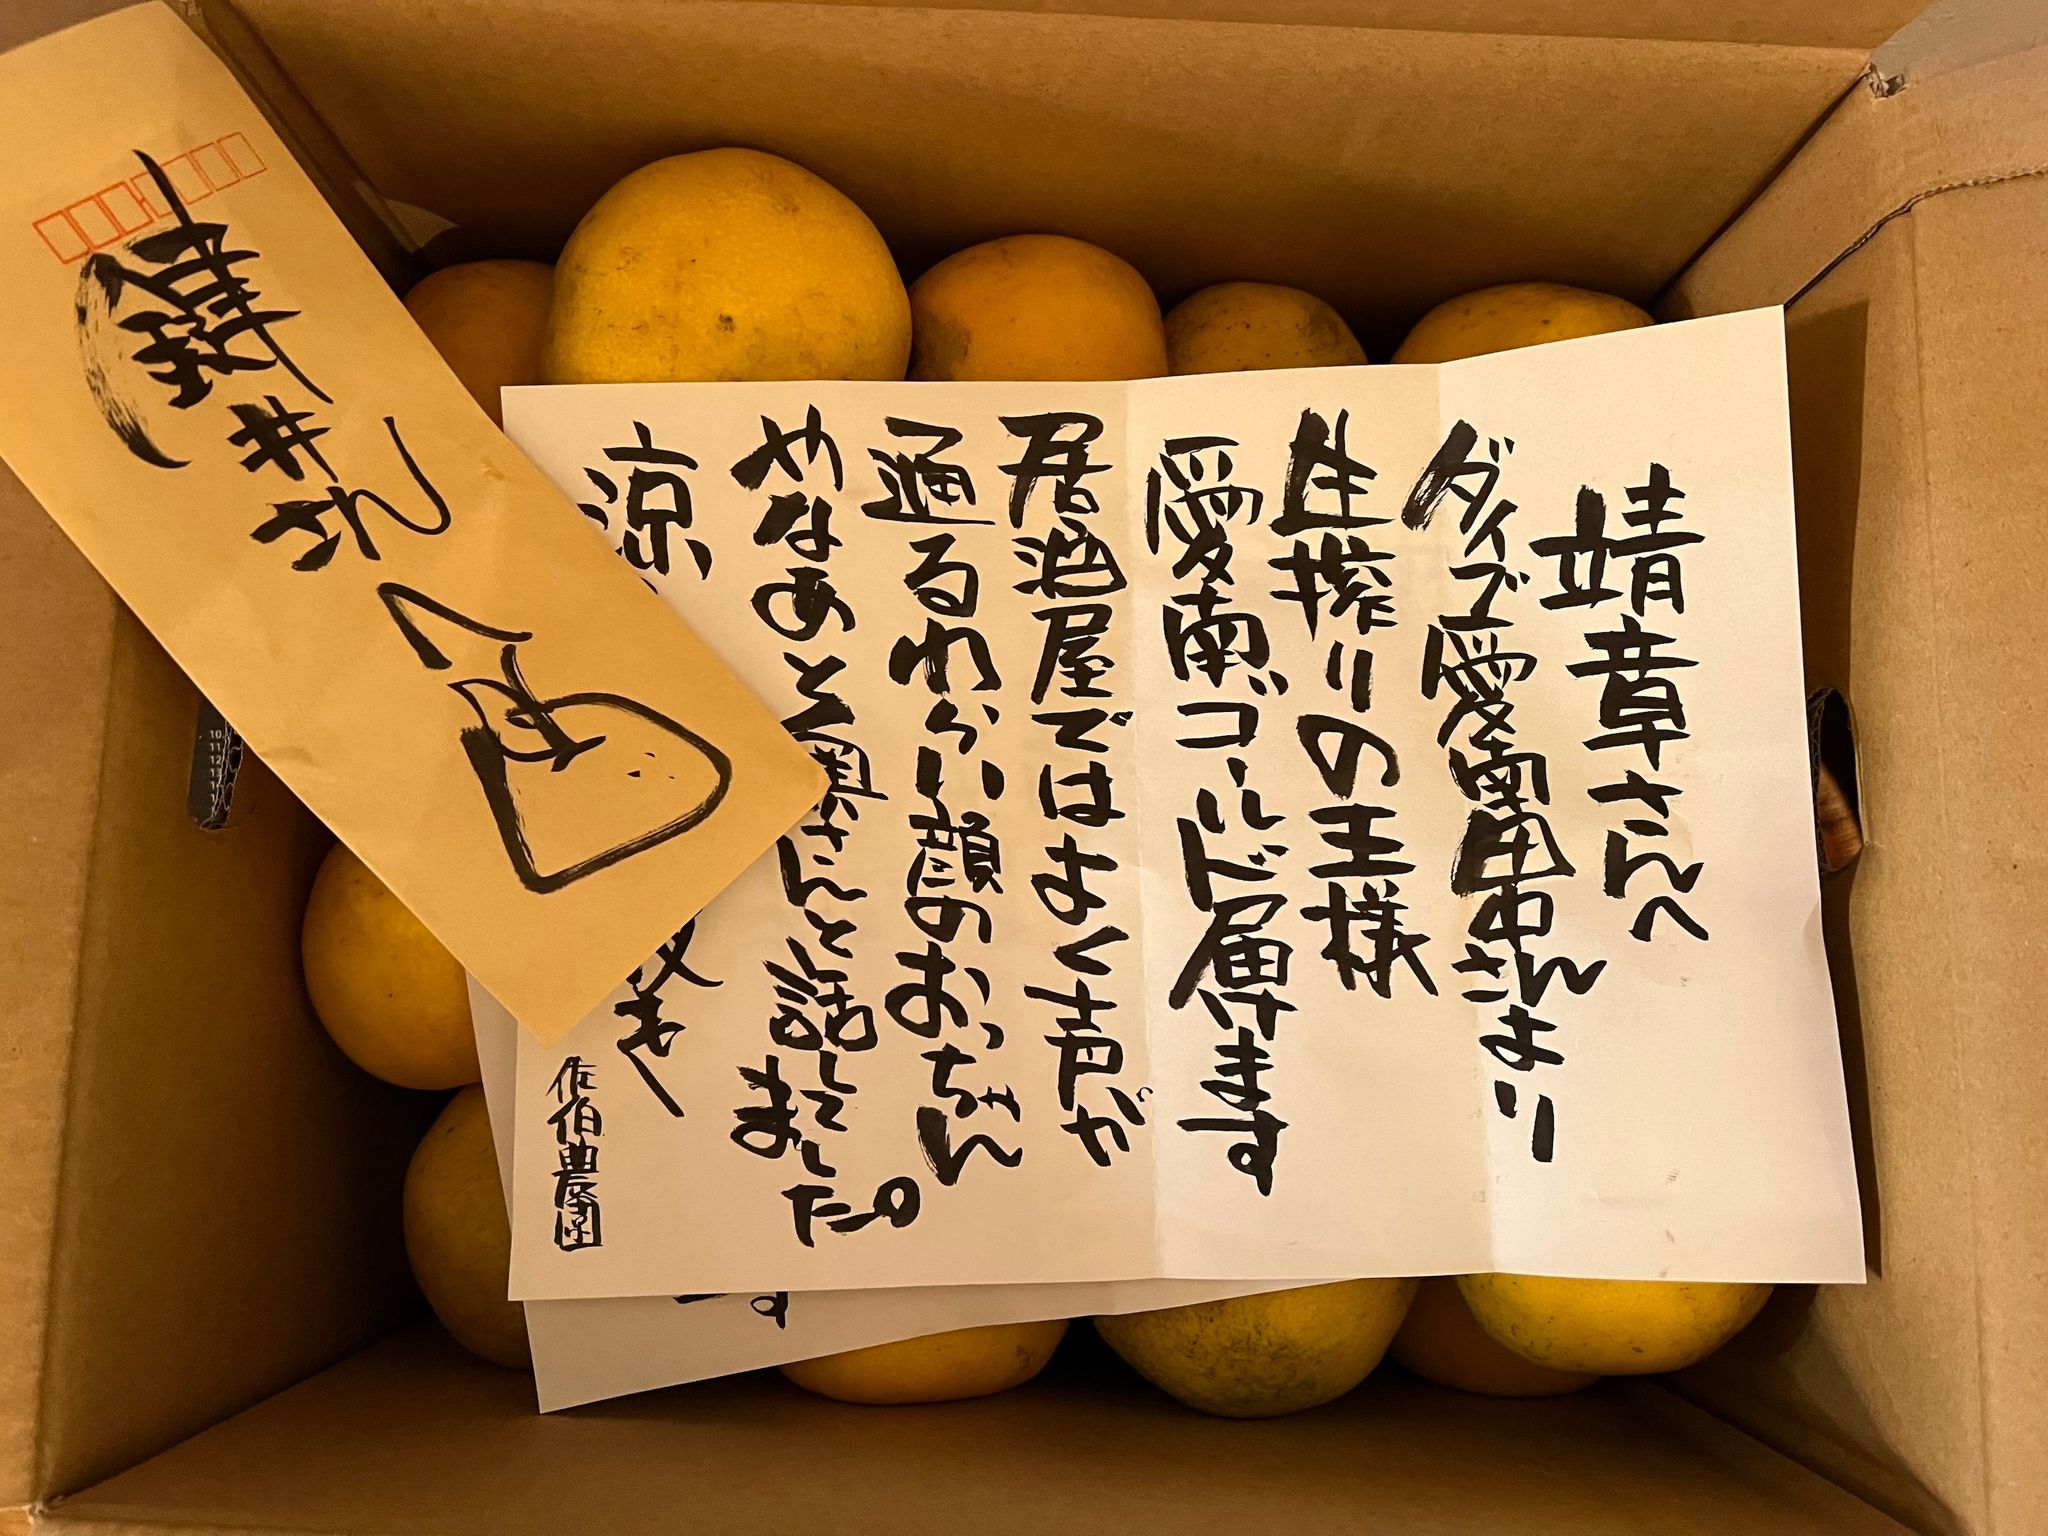 靖章さんへ
ダイズ愛南串さんより
生搾りの王様
愛南ゴールド届けます
居酒屋ではよく声が
通るわらい顔のおっちゃん
やなあと奥さんと話してました。
涼
佐伯農園
井さんへ
10
11
12
13
す